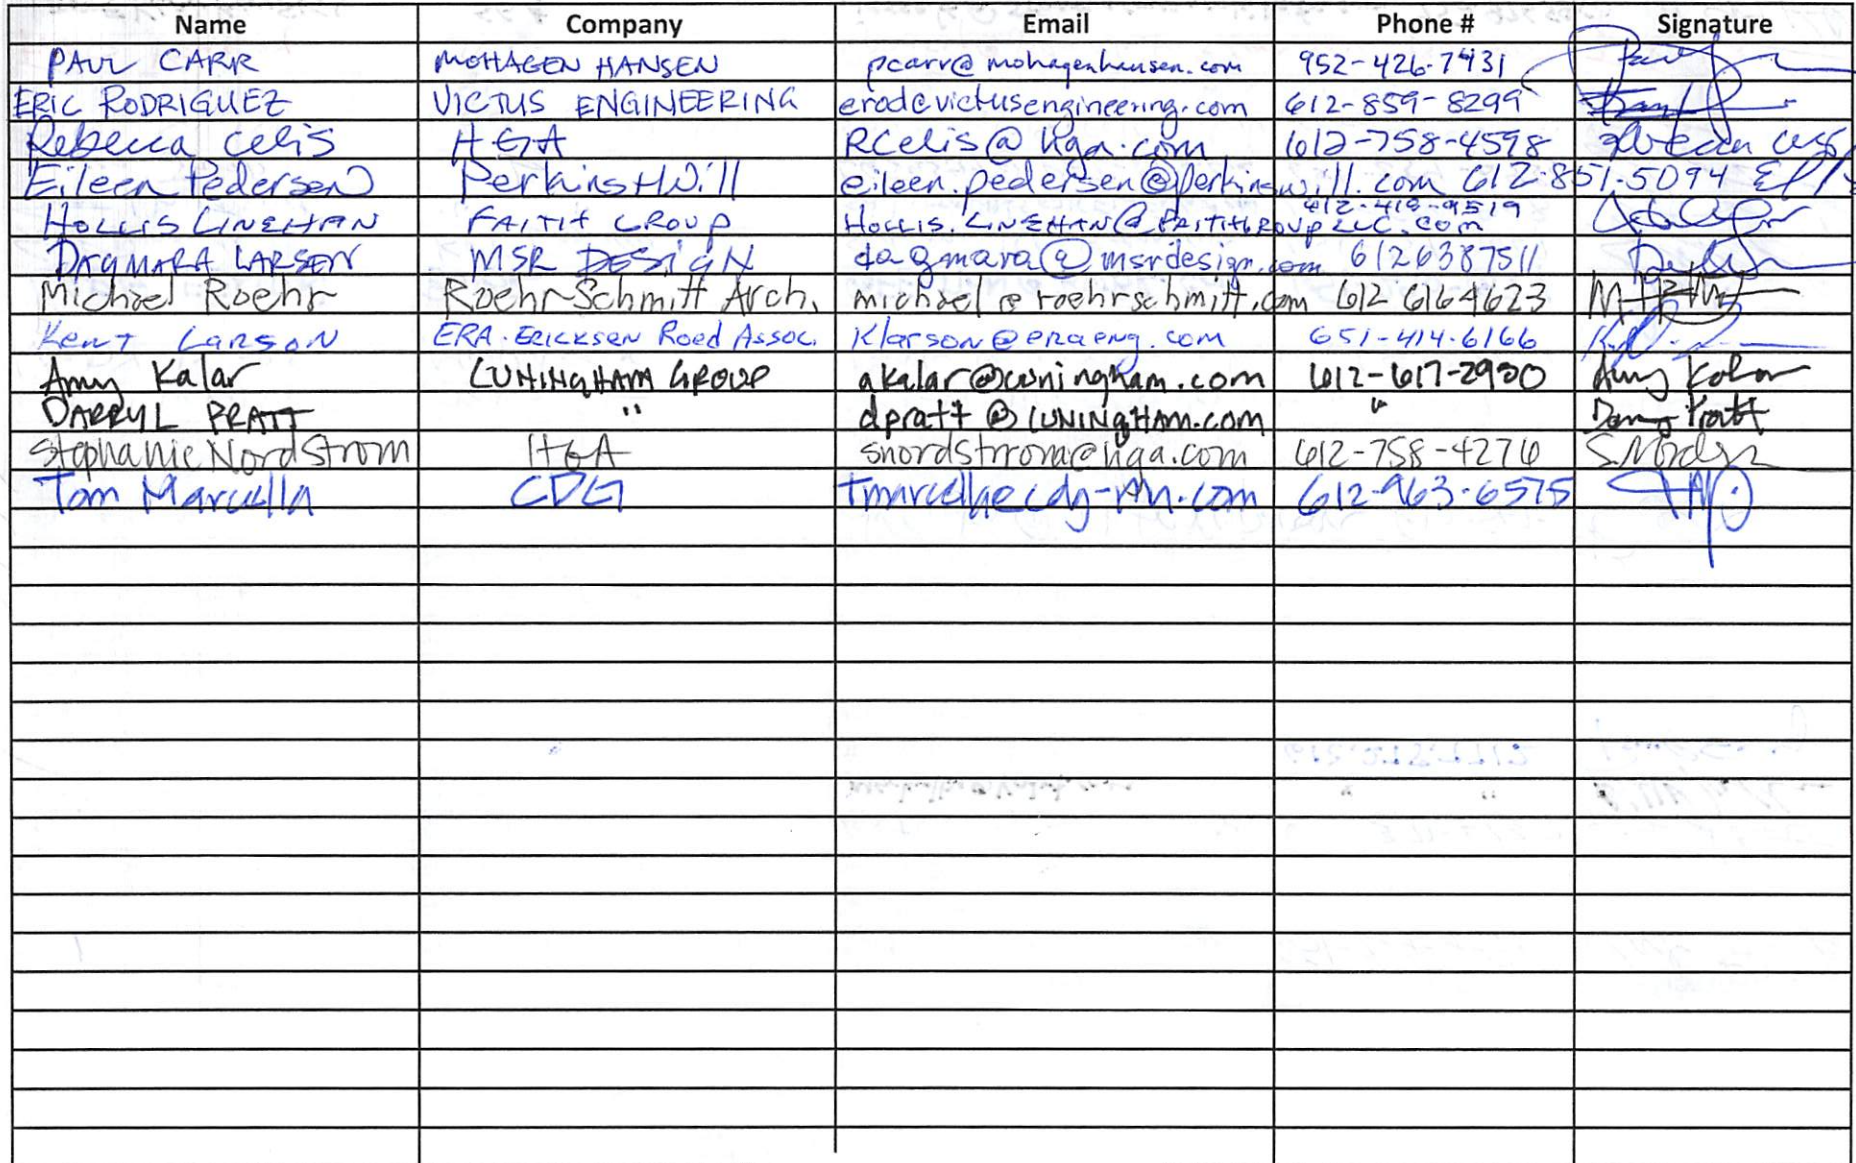 Name Company Email Phone # Signature
PAUL CARR MOHAGEN HANSEN pcarr@mohagenhansen.com 952-426-7431 Paul
ERIC RODRIGUEZ VICTUS ENGINEERING erod@victusengineering.com 612-859-8299
Rebecca Celis HGA RCelis@hga.com 612-758-4598 Rebecca Celis
Eileen Pedersen Perkins+Will eileen.pedersen@perkinswill.com 612-851-5094
HOLLIS LINEHAN FAITH GROUP HOLLIS.LINEHAN@FAITHGROUPLLC.com 612-418-9519
DAGMARA LARSEN MSR DESIGN dagmara@msrdesign.com 6126387511
Michael Roehr RoehrSchmitt Arch. michael@roehrschmitt.com 612 6164623
Kent Larson ERA-Ericksen Roed Assoc. Klarson@eraeng.com 651-414-6166
Amy Kalar CUNINGHAM GROUP akalar@cuningham.com 612-617-2900 Amy Kalar
DARRYL PRATT " dpratt@CUNINGHAM.com " Pratt
Stephanie Nordstrom HGA snordstrom@hga.com 612-758-4276 S. Nords
Tom Marcella CDG tmarcella@cdg-mn.com 612-963-6575